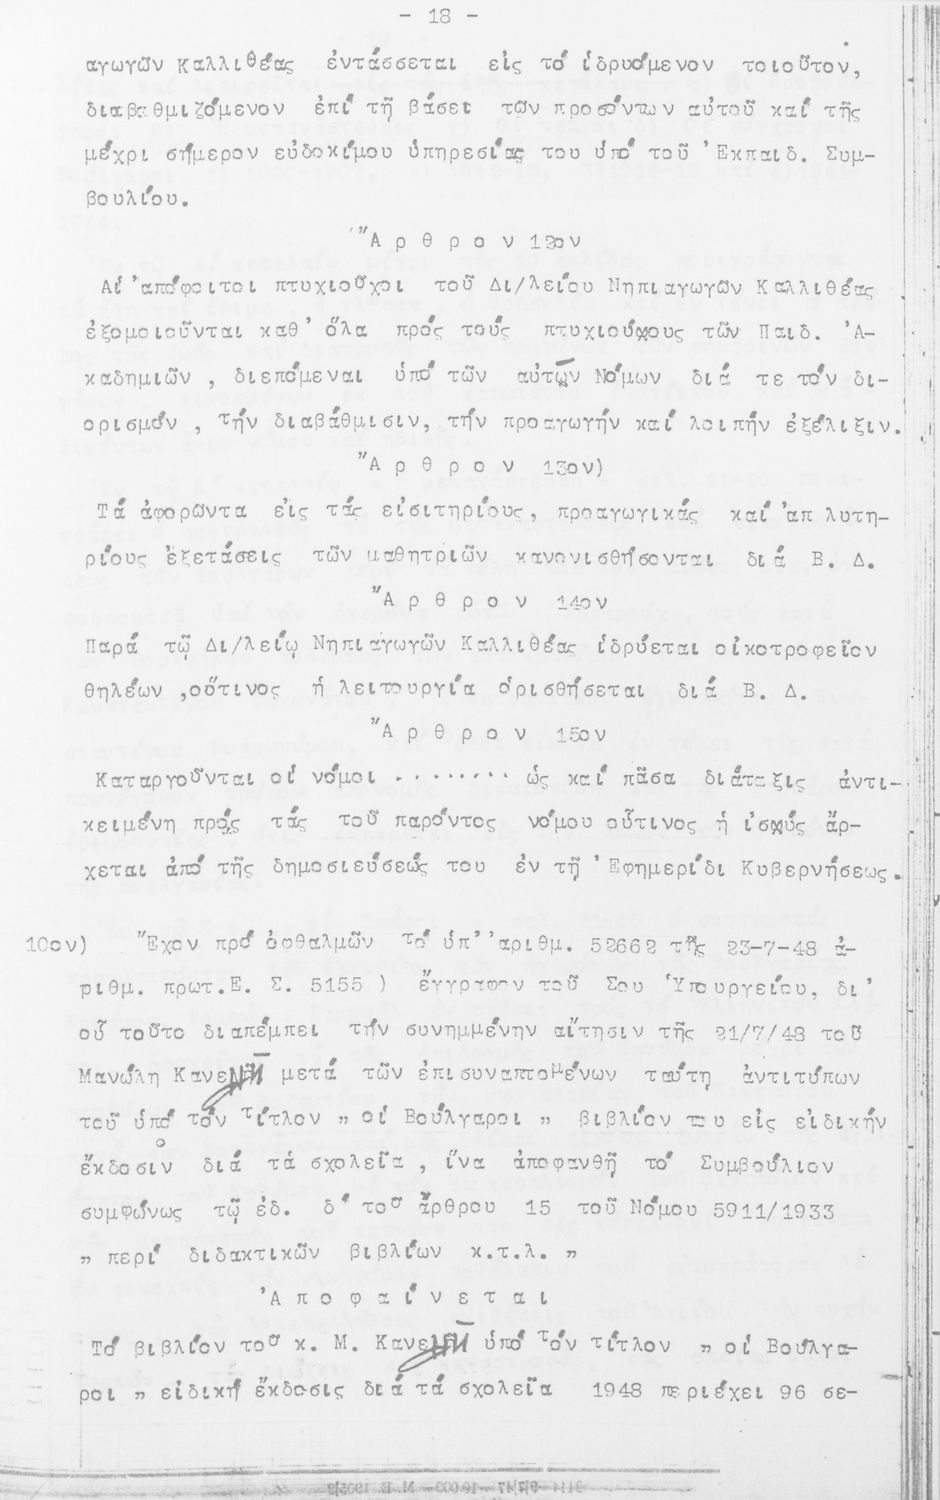 - 18 -
αγωγῶν Καλλιθέας ἐντάσσεται εἰς τό ἱδρυόμενον τοιοῦτον,
διαβαθμιζόμενον ἐπί τῇ βάσει τῶν προσόντων αὐτοῦ καί τῆς
μέχρι σήμερον εὐδοκίμου ὑπηρεσίας του ὑπό τοῦ 'Εκπαιδ. Συμ-
βουλίου.
"Α ρ θ ρ ο ν 12ον
Αἱ 'απόφοιτοι πτυχιοῦχοι τοῦ Δι/λείου Νηπιαγωγῶν Καλλιθέας
ἐξομοιοῦνται καθ' ὅλα πρός τούς πτυχιούχους τῶν Παιδ. 'Α-
καδημιῶν , διεπόμεναι ὑπό τῶν αὐτῶν Νόμων διά τε τόν δι-
ορισμόν , τήν διαβάθμισιν, τήν προαγωγήν καί λοιπήν ἐξέλιξιν.
"Α ρ θ ρ ο ν 13ον)
Τά ἀφορῶντα εἰς τάς εἰσιτηρίους, προαγωγικάς καί 'απ λυτη-
ρίους ἐξετάσεις τῶν μαθητριῶν κανονισθήσονται διά Β. Δ.
"Α ρ θ ρ ο ν 14ον
Παρά τῷ Δι/λείῳ Νηπιαγωγῶν Καλλιθέας ἱδρύεται οἰκοτροφεῖον
θηλέων ,οὕτινος ἡ λειτουργία ὁρισθήσεται διά Β. Δ.
"Α ρ θ ρ ο ν 15ον
Καταργοῦνται οἱ νόμοι ........ ὡς καί πᾶσα διάταξις ἀντι-
κειμένη πρός τάς τοῦ παρόντος νόμου οὗτινος ἡ ἰσχύς ἄρ-
χεται ἀπό τῆς δημοσιεύσεώς του ἐν τῇ 'Εφημερίδι Κυβερνήσεως.
10ον) "Εχον πρό ὀφθαλμῶν τό ὑπ' 'αριθμ. 52662 τῆς 23-7-48 ἀ-
ριθμ. πρωτ.Ε. Σ. 5155 ) ἔγγραφον τοῦ Σου Ὑπουργείου, δι'
οὗ τοῦτο διαπέμπει τήν συνημμένην αἴτησιν τῆς 21/7/48 τοῦ
Μανώλη Κανελλῆ μετά τῶν ἐπισυναπτομένων ταύτῃ ἀντιτύπων
τοῦ ὑπό τόν τίτλον „ οἱ Βούλγαροι „ βιβλίον του εἰς εἰδικήν
ἔκδοσιν διά τά σχολεῖα , ἵνα ἀποφανθῇ τό Συμβούλιον
συμφώνως τῷ ἐδ. δ' τοῦ ἄρθρου 15 τοῦ Νόμου 5911/1933
„ περί διδακτικῶν βιβλίων κ.τ.λ. „
'Α π ο φ α ί ν ε τ α ι
Τό βιβλίον τοῦ κ. Μ. Κανελλῆ ὑπό τόν τίτλον „ οἱ Βούλγα-
ροι „ εἰδική ἔκδοσις διά τά σχολεῖα 1948 περιέχει 96 σε-